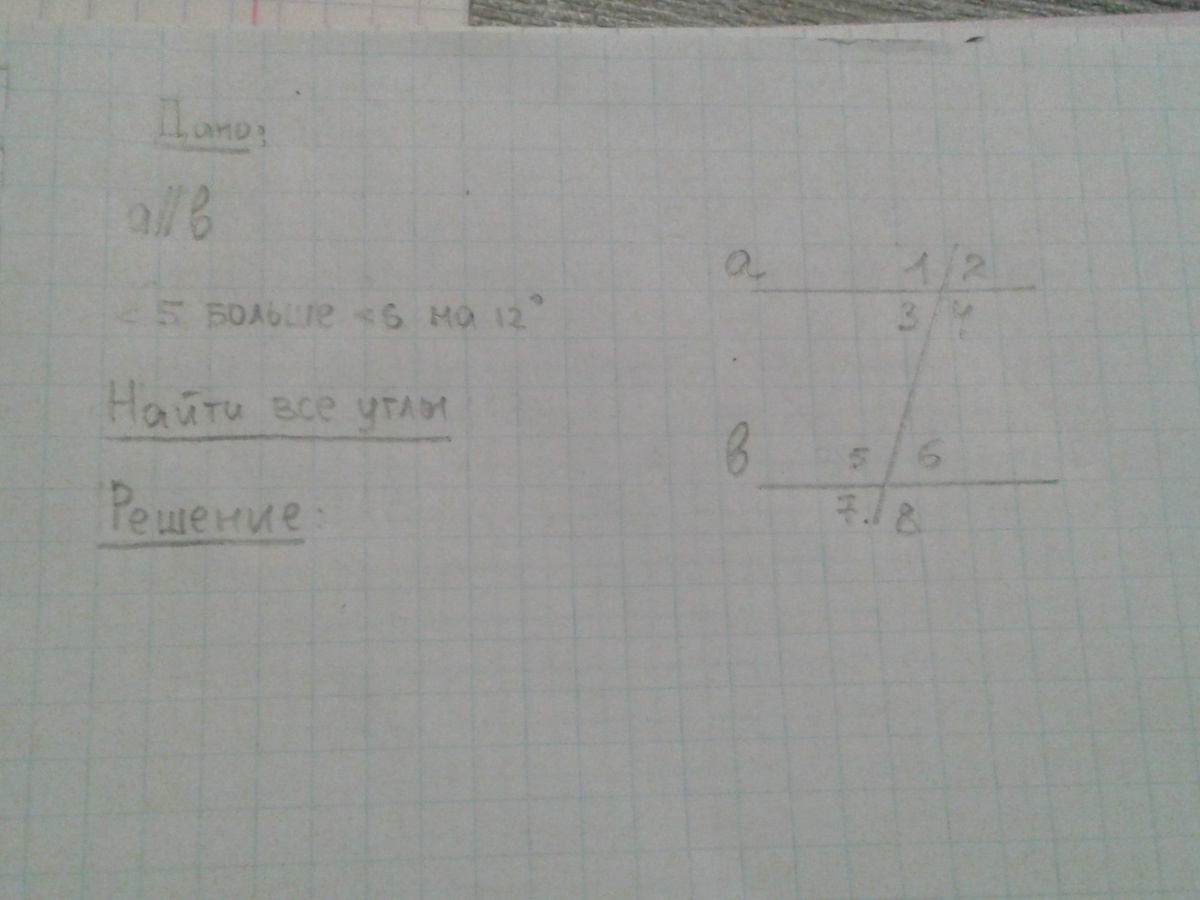 Дано:
a||b
<5 больше <6 на 12°
Найти все углы
Решение:
a
1 2
3 4
b
5 6
7. 8